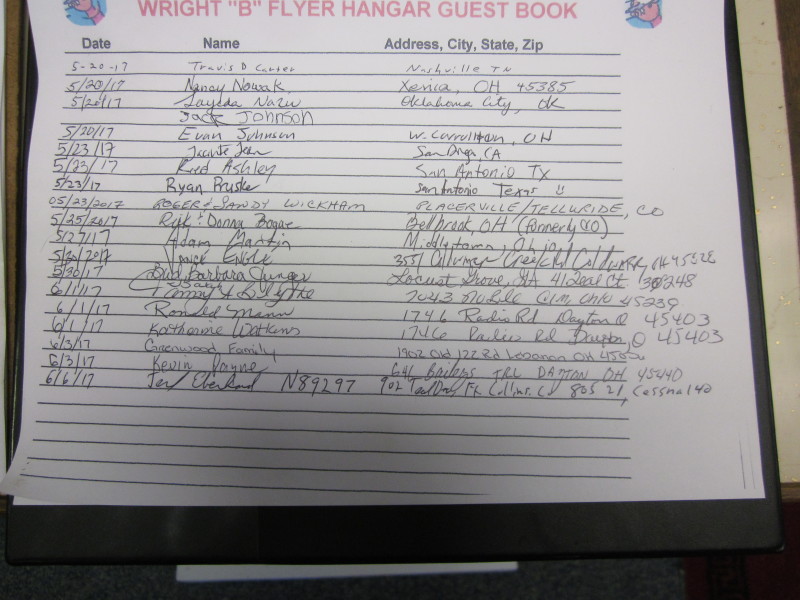 WRIGHT "B" FLYER HANGAR GUEST BOOK
Date Name Address, City, State, Zip
5-20-17 Travis D Carter Nashville TN
5/20/17 Nancy Nowak Xenica, OH 45385
5/20/17 Oklahoma City, OK
Jack Johnson
5/20/17 Evan Johnson W. Carrollton, OH
5/23/17 San Diego, CA
5/23/17 Ashley San Antonio TX
5/23/17 Ryan Pruske San Antonio Texas
05/23/2017 ROGER & SANDY WICKHAM PLACERVILLE/TELLURIDE, CO
5/25/2017 Donna Bellbrook, OH (formerly CO)
5/27/17 Adam Martin Middletown, Ohio
5/30/2017 3551
5/30/17 Barbara Locust Grove, GA 412 Ct. 30248
6/1/17 7043 Ohio 45239
6/1/17 Ronald Mann 1746 Radio Rd Dayton O 45403
6/1/17 Katherine Watkins 1746 Radio Rd Dayton, O 45403
6/3/17 Greenwood Family 1902 Old 122 Rd Lebanon OH
6/3/17 Kevin Payne 641 TRL DAYTON OH 45440
6/6/17 N89297 902 Ft. Collins, Co 80521, Cessna 140